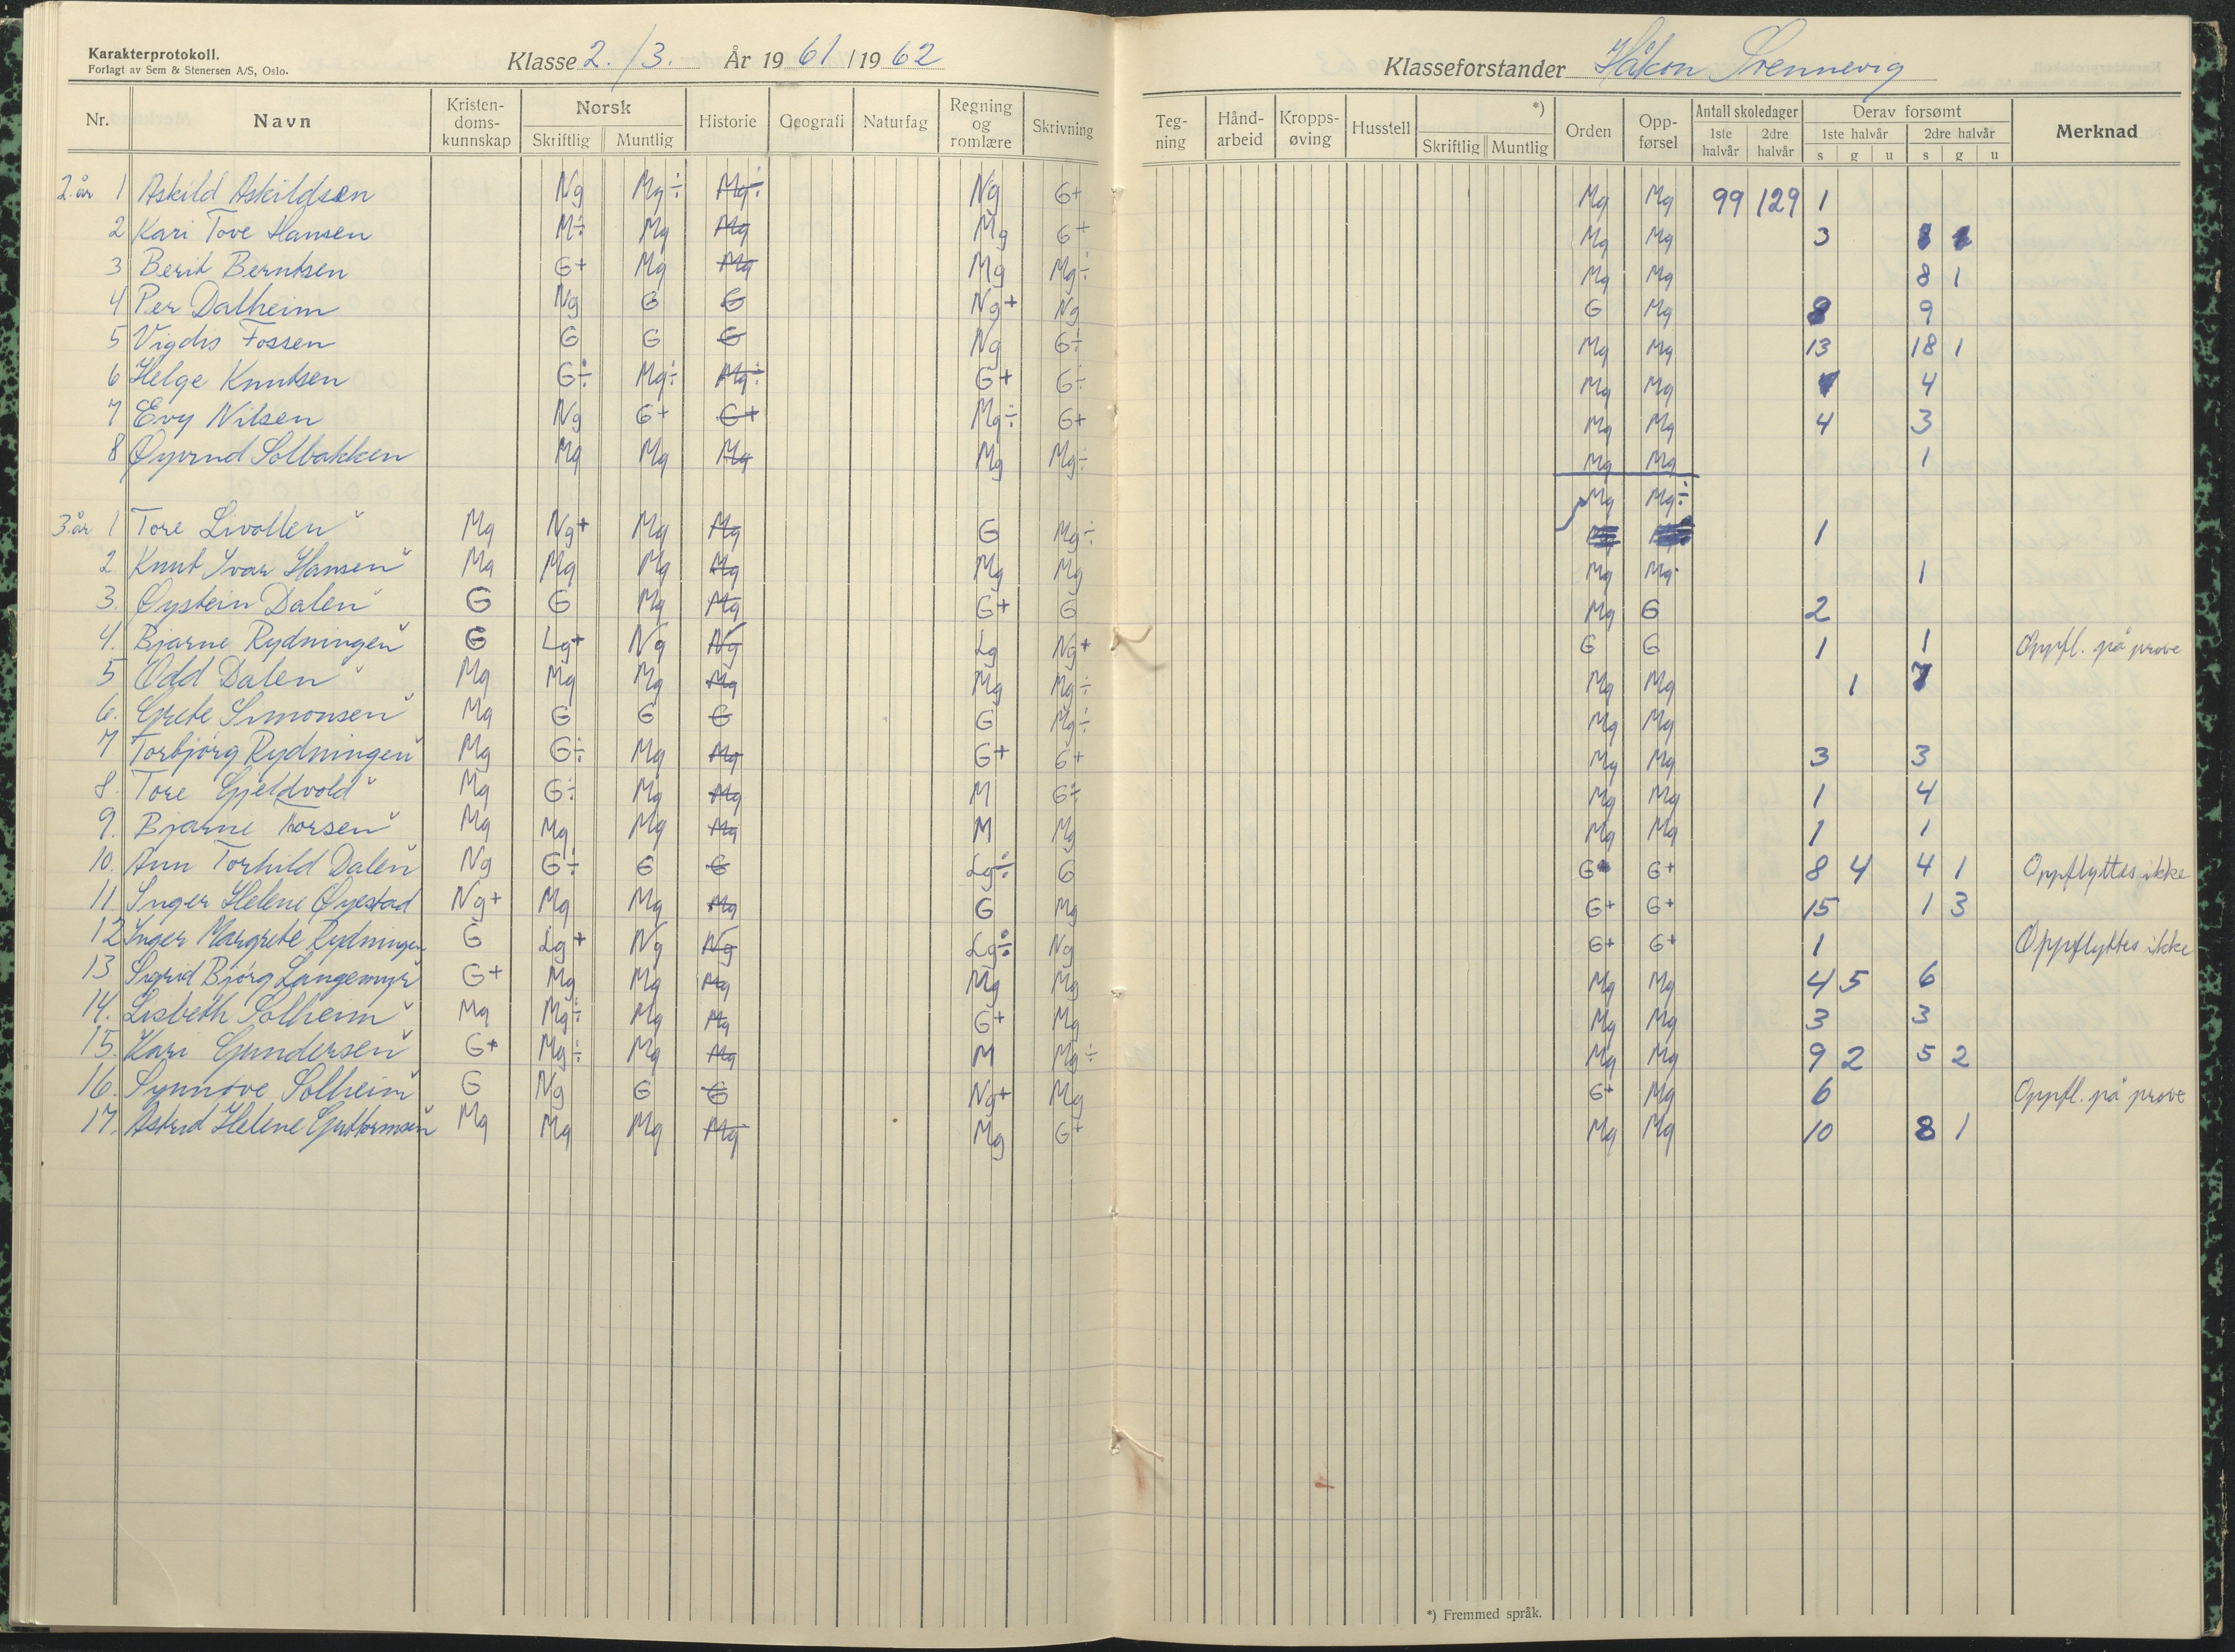 Karakterprotokoll.
Forlagt av Sem & Stenersen A/S, Oslo.
Klasse 2./3. År 1961/1962
Klasseforstander Håkon Svennevig
Nr. Navn Kristendomskunnskap Norsk Skriftlig Muntlig Historie Geografi Naturfag Regning og romlære Skrivning Tegning Håndarbeid Kroppsøving Husstell *) Skriftlig Muntlig Orden Oppførsel Antall skoledager 1ste halvår 2dre halvår Derav forsømt 1ste halvår s g u 2dre halvår s g u Merknad
2.år 1 Askild Askildsen Ng Mg÷ Mg÷ Ng G+ Mg Mg 99 129 1
2 Kari Tove Hansen M÷ Mg Mg Mg G+ Mg Mg 3
3 Berit Berntsen G+ Mg Mg Mg Mg÷ Mg Mg 8 1
4 Per Dalheim Ng G G Ng+ Ng G Mg 8 9
5 Vigdis Fossen G G G Ng G÷ Mg Mg 13 18 1
6 Helge Knutsen G÷ Mg÷ Mg÷ G+ G÷ Mg Mg 4
7 Evy Nilsen Ng G+ G+ Mg÷ G+ Mg Mg 4 3
8 Øyvind Solbakken Mg Mg Mg Mg Mg÷ Mg Mg 1
Mg Mg÷
3.år 1 Tore Livollen Mg Ng+ Mg Mg G Mg÷ 1
2. Knut Ivar Hansen Mg Mg Mg Mg Mg Mg Mg Mg 1
3. Øystein Dalen G G Mg Mg G+ G Mg G 2
4. Bjarne Rydningen G Lg+ Ng Ng Lg Ng+ G G 1 1 Oppfl. på prøve
5 Odd Dalen Mg Mg Mg Mg Mg Mg÷ Mg Mg 1 7
6. Grete Simonsen Mg G G G G Mg÷ Mg Mg
7 Torbjørg Rydningen Mg G÷ Mg Mg G+ G+ Mg Mg 3 3
8. Tore Gjeldvold Mg G÷ Mg Mg M G÷ Mg Mg 1 4
9. Bjarne Thorsen Mg Mg Mg Mg M Mg Mg Mg 1 1
10. Ann Torhild Dalen Ng G÷ G G Lg÷ G G+ G+ 8 4 4 1 Oppflyttes ikke
11. Inger Helene Øyestad Ng+ Mg Mg Mg G Mg G+ G+ 15 1 3
12 Inger Margrete Rydningen G Lg+ Ng Ng Lg÷ Ng G+ G+ 1 Oppflyttes ikke
13 Sigrid Bjørg Langemyr G+ Mg Mg Mg Mg Mg Mg Mg 4 5 6
14. Lisbeth Solheim Mg Mg÷ Mg Mg G+ Mg Mg Mg 3 3
15. Kari Gundersen G+ Mg÷ Mg Mg M Mg÷ Mg Mg 9 2 5 2
16. Synnøve Solheim G Ng G G Ng+ Mg G+ Mg 6 Oppfl. på prøve
17. Astrid Helene Guttormsen Mg Mg Mg Mg Mg G+ Mg Mg 10 8 1
*) Fremmed språk.